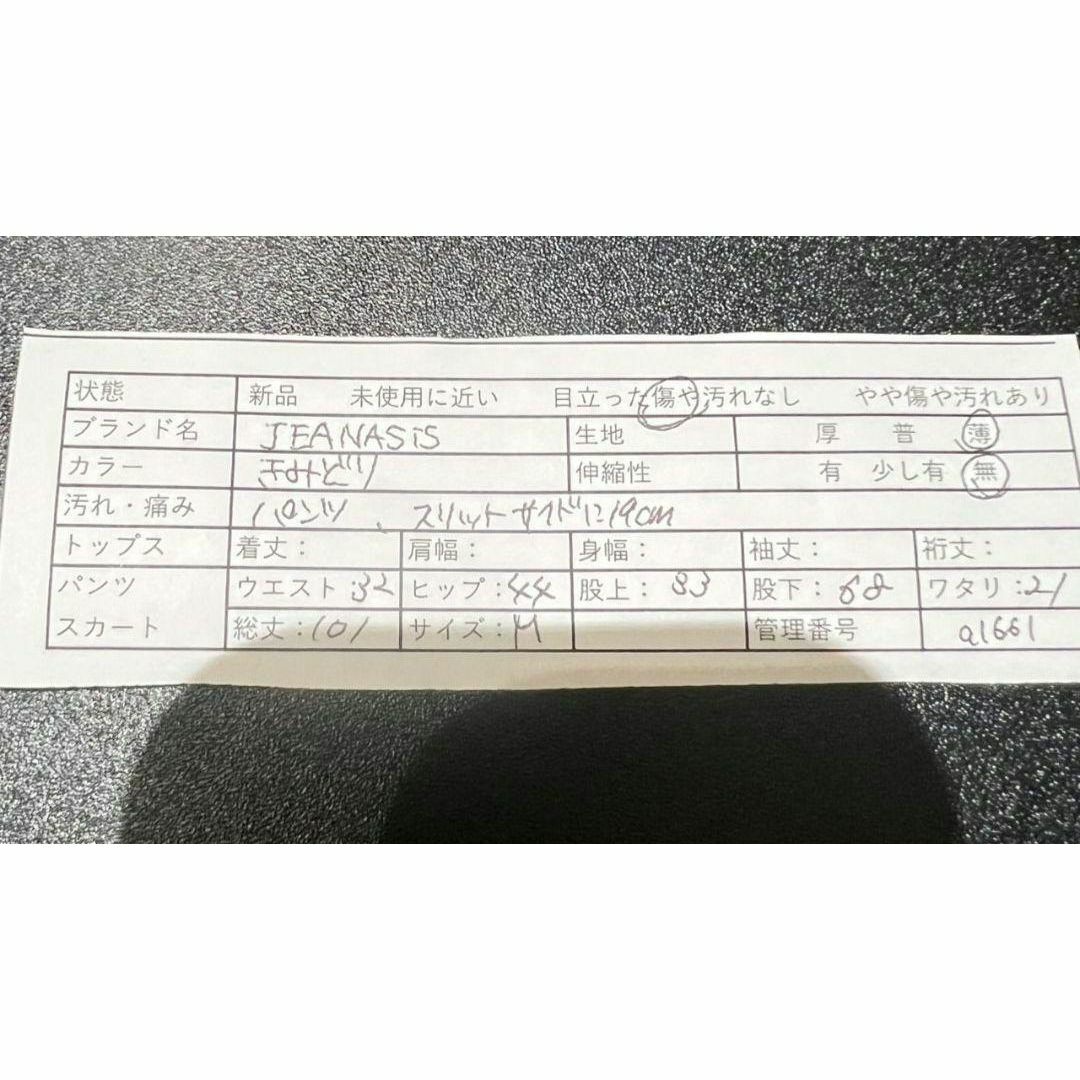 状態 新品 未使用に近い 目立った傷や汚れなし やや傷や汚れあり
ブランド名 JEANASIS 生地 厚 普 薄
カラー きみどり 伸縮性 有 少し有 無
汚れ・痛み パンツ、スリットサイドに19cm
トップス 着丈: 肩幅: 身幅: 袖丈: 裄丈:
パンツ ウエスト:32 ヒップ:44 股上:33 股下:68 ワタリ:21
スカート 総丈:101 サイズ:M 管理番号 a1661